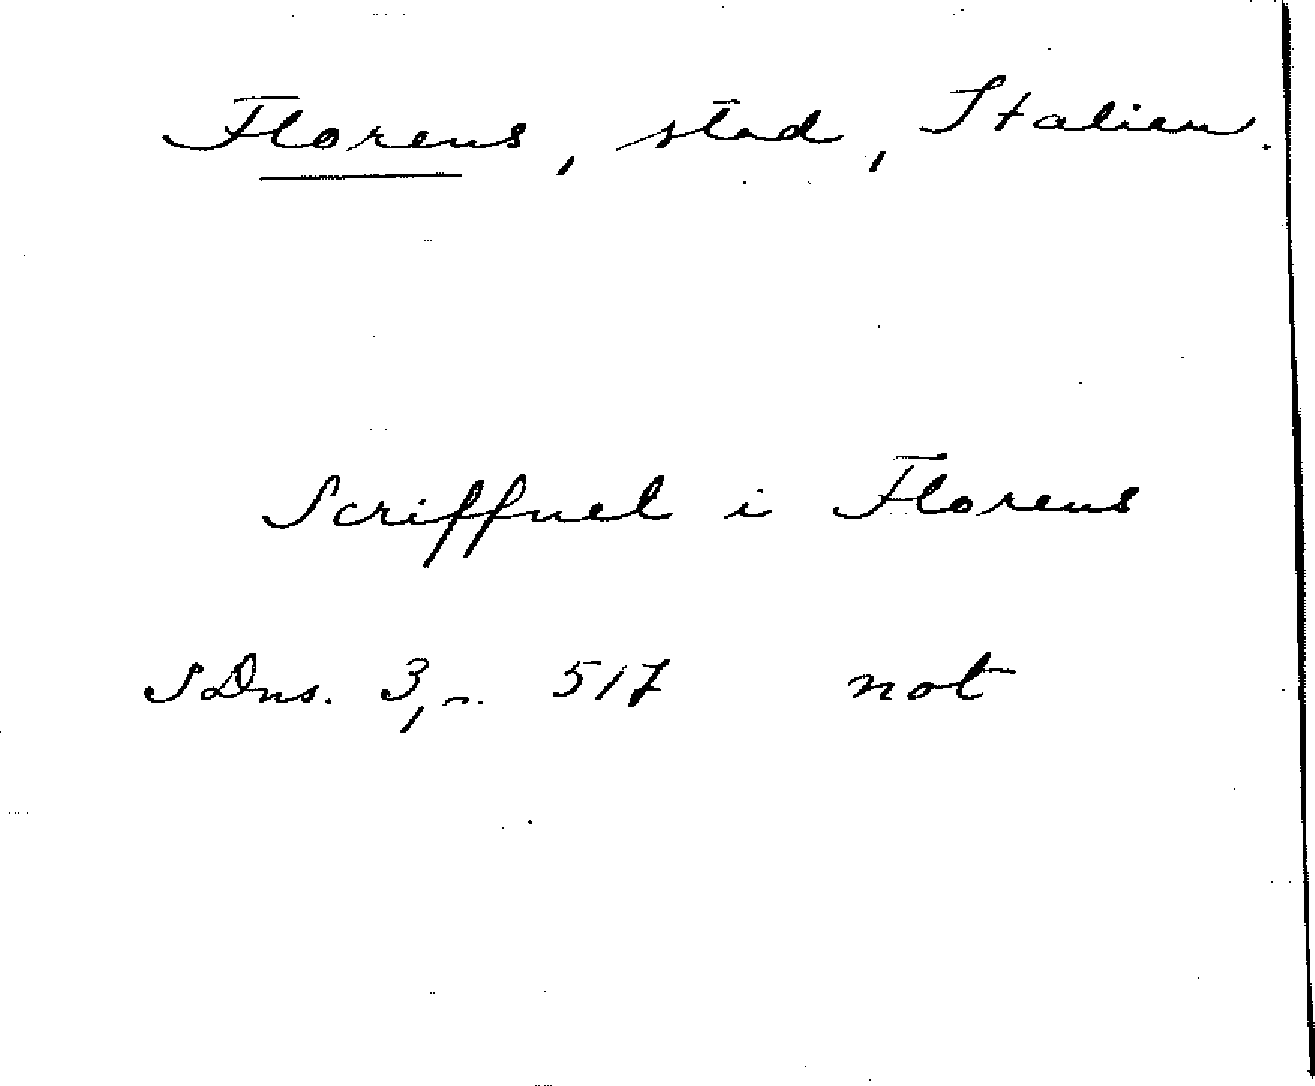 Florens, stad, Italien.
Scriffuel i Florens
SDns. 3, s. 517 not